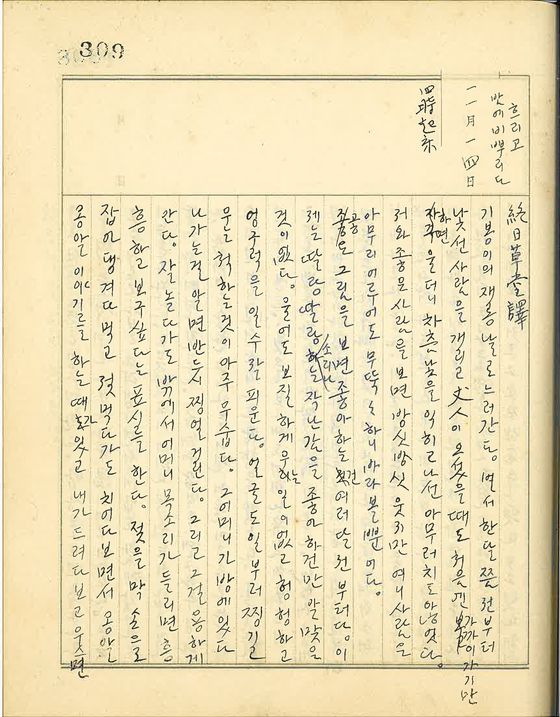 309
흐리고
밧에 비 뿌리다
一一月 一四日
四時起床
終日草堂譯
기봉이의 재롱 날로 느러간다. 면서 한달 쯤 전부터
낯선 사람을 개리고 丈人이 오셨을 때도 처음엔 가까이 가기만
하면 울더니 차츰 낯을 익히고 나선 아무러치도 안넣었다.
저와 좋은 사람을 보면 방싯방싯 웃지만 여늬 사람은
아무리 어루어도 무뚝뚝하니 바라볼 뿐이다.
그림을 보면 좋아하는 건 여러 달 전부터다. 이
제는 딸랑딸랑 소리나는 작난감을 좋아하건만 알맞은
것이 없다. 울어도 보질하게 우는 일이 없고 헝헝하고
엉구럭을 일수 잘 피운다. 얼골도 일부러 찡기고
우는 척 하는 것이 아주 우습다. 그 어머니가 방에 있다
나가는 걸 알면 반듯이 찡얼거린다. 그리고 그걸 용하게
안다. 잘 놀다가도 밖에서 어머니 목소리가 들리면 흥
흥하고 보구싶다는 표시를 한다. 젖을 막 손으로
잡아댕겨다 먹고 젖 먹다가도 치어다보면서 옹알
옹알 이야기를 하는 때가 있고 내가 드려다보고 웃으면